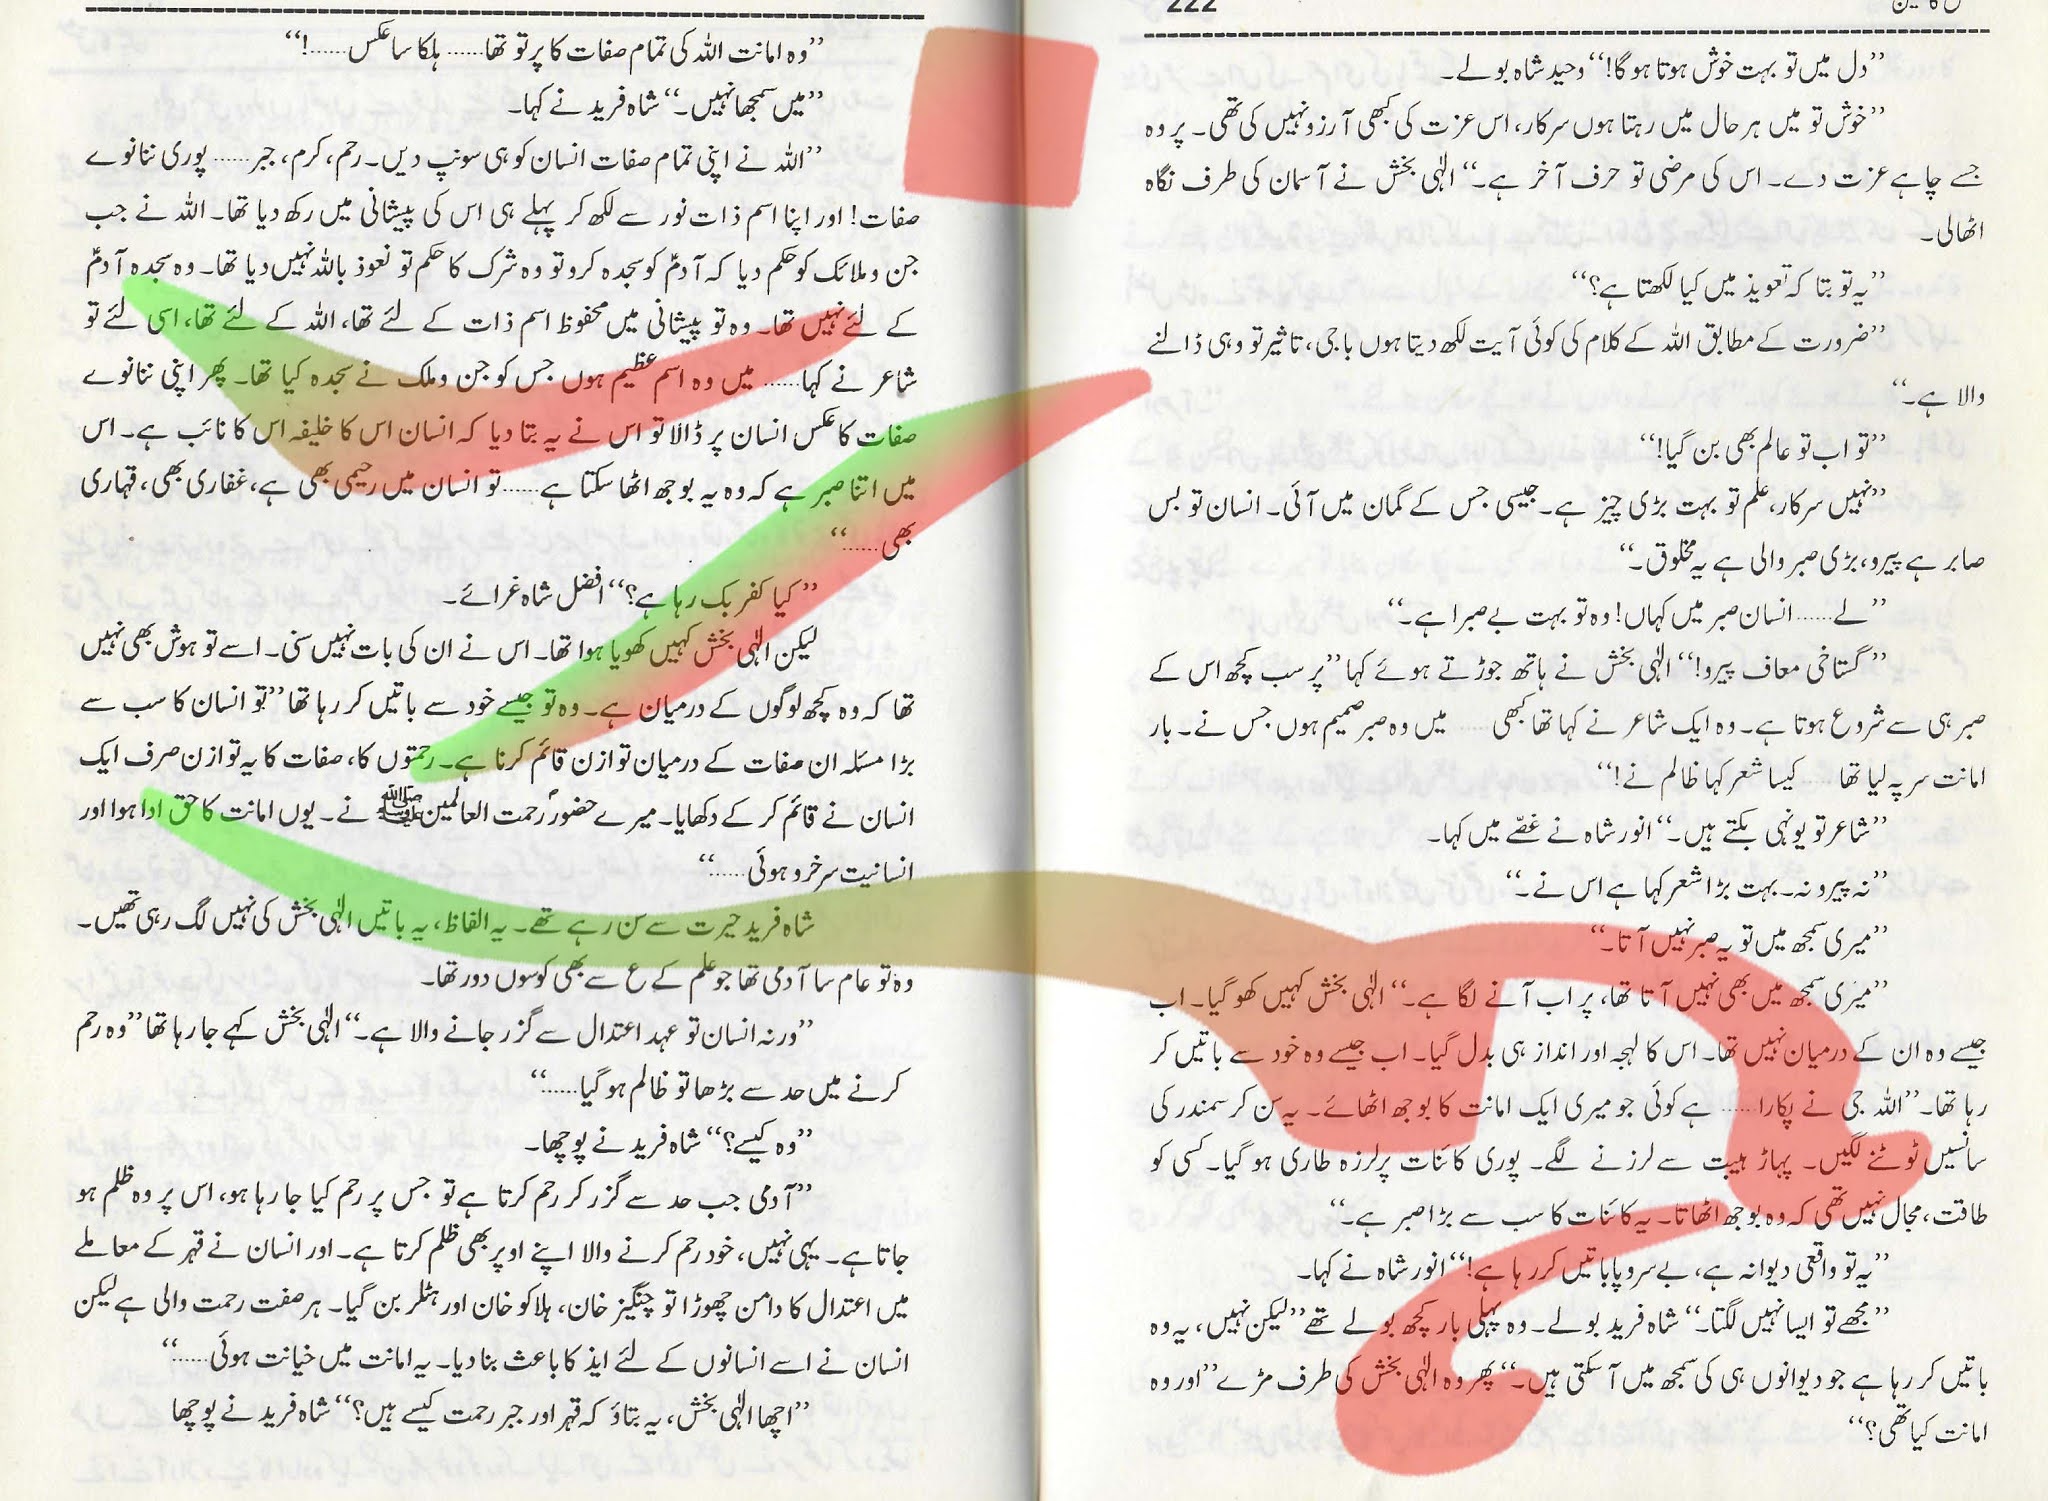 222
”دل میں تو بہت خوش ہوتا ہوگا!“ وحید شاہ بولے۔
”خوش تو میں ہر حال میں رہتا ہوں سرکار، اس عزت کی کبھی آرزو نہیں کی تھی۔ پر وہ
جسے چاہے عزت دے۔ اس کی مرضی تو حرف آخر ہے۔“ الٰہی بخش نے آسمان کی طرف نگاہ
اٹھالی۔
”یہ تو بتا کہ تعویذ میں کیا لکھتا ہے؟“
”ضرورت کے مطابق اللہ کے کلام کی کوئی آیت لکھ دیتا ہوں باجی، تاثیر تو وہی ڈالنے
والا ہے۔“
”تو اب تو عالم بھی بن گیا!“
”نہیں سرکار، علم تو بہت بڑی چیز ہے۔ جیسی جس کے گمان میں آئی۔ انسان تو بس
صابر ہے پیرو، بڑی صبر والی ہے یہ مخلوق۔“
”لے...... انسان صبر میں کہاں! وہ تو بہت بے صبرا ہے۔“
”گستاخی معاف پیرو!“ الٰہی بخش نے ہاتھ جوڑتے ہوئے کہا ”پر سب کچھ اس کے
صبر ہی سے شروع ہوتا ہے۔ وہ ایک شاعر نے کہا تھا کبھی ...... میں وہ صبر صمیم ہوں جس نے۔ بار
امانت سر پہ لیا تھا ...... کیسا شعر کہا ظالم نے!“
”شاعر تو یونہی بکتے ہیں۔“ انور شاہ نے غصّے میں کہا۔
”نہ پیرو نہ۔ بہت بڑا شعر کہا ہے اس نے۔“
”میری سمجھ میں تو یہ صبر نہیں آتا۔“
”میری سمجھ میں بھی نہیں آتا تھا، پر اب آنے لگا ہے۔“ الٰہی بخش کہیں کھو گیا۔ اب
جیسے وہ ان کے درمیان نہیں تھا۔ اس کا لہجہ اور انداز ہی بدل گیا۔ اب جیسے وہ خود سے باتیں کر
رہا تھا۔ ”اللہ جی نے پکارا...... ہے کوئی جو میری ایک امانت کا بوجھ اٹھائے۔ یہ سن کر سمندر کی
سانسیں ٹوٹنے لگیں۔ پہاڑ ہیبت سے لرزنے لگے۔ پوری کائنات پر لرزہ طاری ہو گیا۔ کسی کو
طاقت، مجال نہیں تھی کہ وہ بوجھ اٹھاتا۔ یہ کائنات کا سب سے بڑا صبر ہے۔“
”یہ تو واقعی دیوانہ ہے، بے سروپا باتیں کر رہا ہے!“ انور شاہ نے کہا۔
”مجھے تو ایسا نہیں لگتا۔“ شاہ فرید بولے۔ وہ پہلی بار کچھ بولے تھے ”لیکن نہیں، یہ وہ
باتیں کر رہا ہے جو دیوانوں ہی کی سمجھ میں آسکتی ہیں۔“ پھر وہ الٰہی بخش کی طرف مڑے ”اور وہ
امانت کیا تھی؟“
”وہ امانت اللہ کی تمام صفات کا پر تو تھا...... ہلکا سا عکس......!“
”میں سمجھا نہیں۔“ شاہ فرید نے کہا۔
”اللہ نے اپنی تمام صفات انسان کو ہی سونپ دیں۔ رحم، کرم، جبر...... پوری ننانوے
صفات! اور اپنا اسم ذات نور سے لکھ کر پہلے ہی اس کی پیشانی میں رکھ دیا تھا۔ اللہ نے جب
جن و ملائک کو حکم دیا کہ آدمؑ کو سجدہ کرو تو وہ شرک کا حکم تو نعوذ باللہ نہیں دیا تھا۔ وہ سجدہ آدمؑ
کے لئے نہیں تھا۔ وہ تو پیشانی میں محفوظ اسم ذات کے لئے تھا، اللہ کے لئے تھا، اسی لئے تو
شاعر نے کہا...... میں وہ اسم عظیم ہوں جس کو جن و ملک نے سجدہ کیا تھا۔ پھر اپنی ننانوے
صفات کا عکس انسان پر ڈالا تو اس نے یہ بتا دیا کہ انسان اس کا خلیفہ اس کا نائب ہے۔ اس
میں اتنا صبر ہے کہ وہ یہ بوجھ اٹھا سکتا ہے...... تو انسان میں رحیمی بھی ہے، غفاری بھی، قہاری
بھی......“
”کیا کفر بک رہا ہے؟“ افضل شاہ غرائے۔
لیکن الٰہی بخش کہیں کھویا ہوا تھا۔ اس نے ان کی بات نہیں سنی۔ اسے تو ہوش بھی نہیں
تھا کہ وہ کچھ لوگوں کے درمیان ہے۔ وہ تو جیسے خود سے باتیں کر رہا تھا ”تو انسان کا سب سے
بڑا مسئلہ ان صفات کے درمیان توازن قائم کرنا ہے۔ رحمتوں کا، صفات کا یہ توازن صرف ایک
انسان نے قائم کر کے دکھایا۔ میرے حضورؐ رحمت العالمین ﷺ نے۔ یوں امانت کا حق ادا ہوا اور
انسانیت سرخرو ہوئی......“
شاہ فرید حیرت سے سن رہے تھے۔ یہ الفاظ، یہ باتیں الٰہی بخش کی نہیں لگ رہی تھیں۔
وہ تو عام سا آدمی تھا جو علم کے ع سے بھی کوسوں دور تھا۔
”ورنہ انسان تو عہد اعتدال سے گزر جانے والا ہے۔“ الٰہی بخش کہے جا رہا تھا ”وہ رحم
کرنے میں حد سے بڑھا تو ظالم ہو گیا......“
”وہ کیسے؟“ شاہ فرید نے پوچھا۔
”آدمی جب حد سے گزر کر رحم کرتا ہے تو جس پر رحم کیا جا رہا ہو، اس پر وہ ظلم ہو
جاتا ہے۔ یہی نہیں، خود رحم کرنے والا اپنے اوپر بھی ظلم کرتا ہے۔ اور انسان نے قہر کے معاملے
میں اعتدال کا دامن چھوڑا تو چنگیز خان، ہلاکو خان اور ہٹلر بن گیا۔ ہر صفت رحمت والی ہے لیکن
انسان نے اسے انسانوں کے لئے ایذ کا باعث بنا دیا۔ یہ امانت میں خیانت ہوئی......“
”اچھا الٰہی بخش، یہ بتاؤ کہ قہر اور جبر رحمت کیسے ہیں؟“ شاہ فرید نے پوچھا